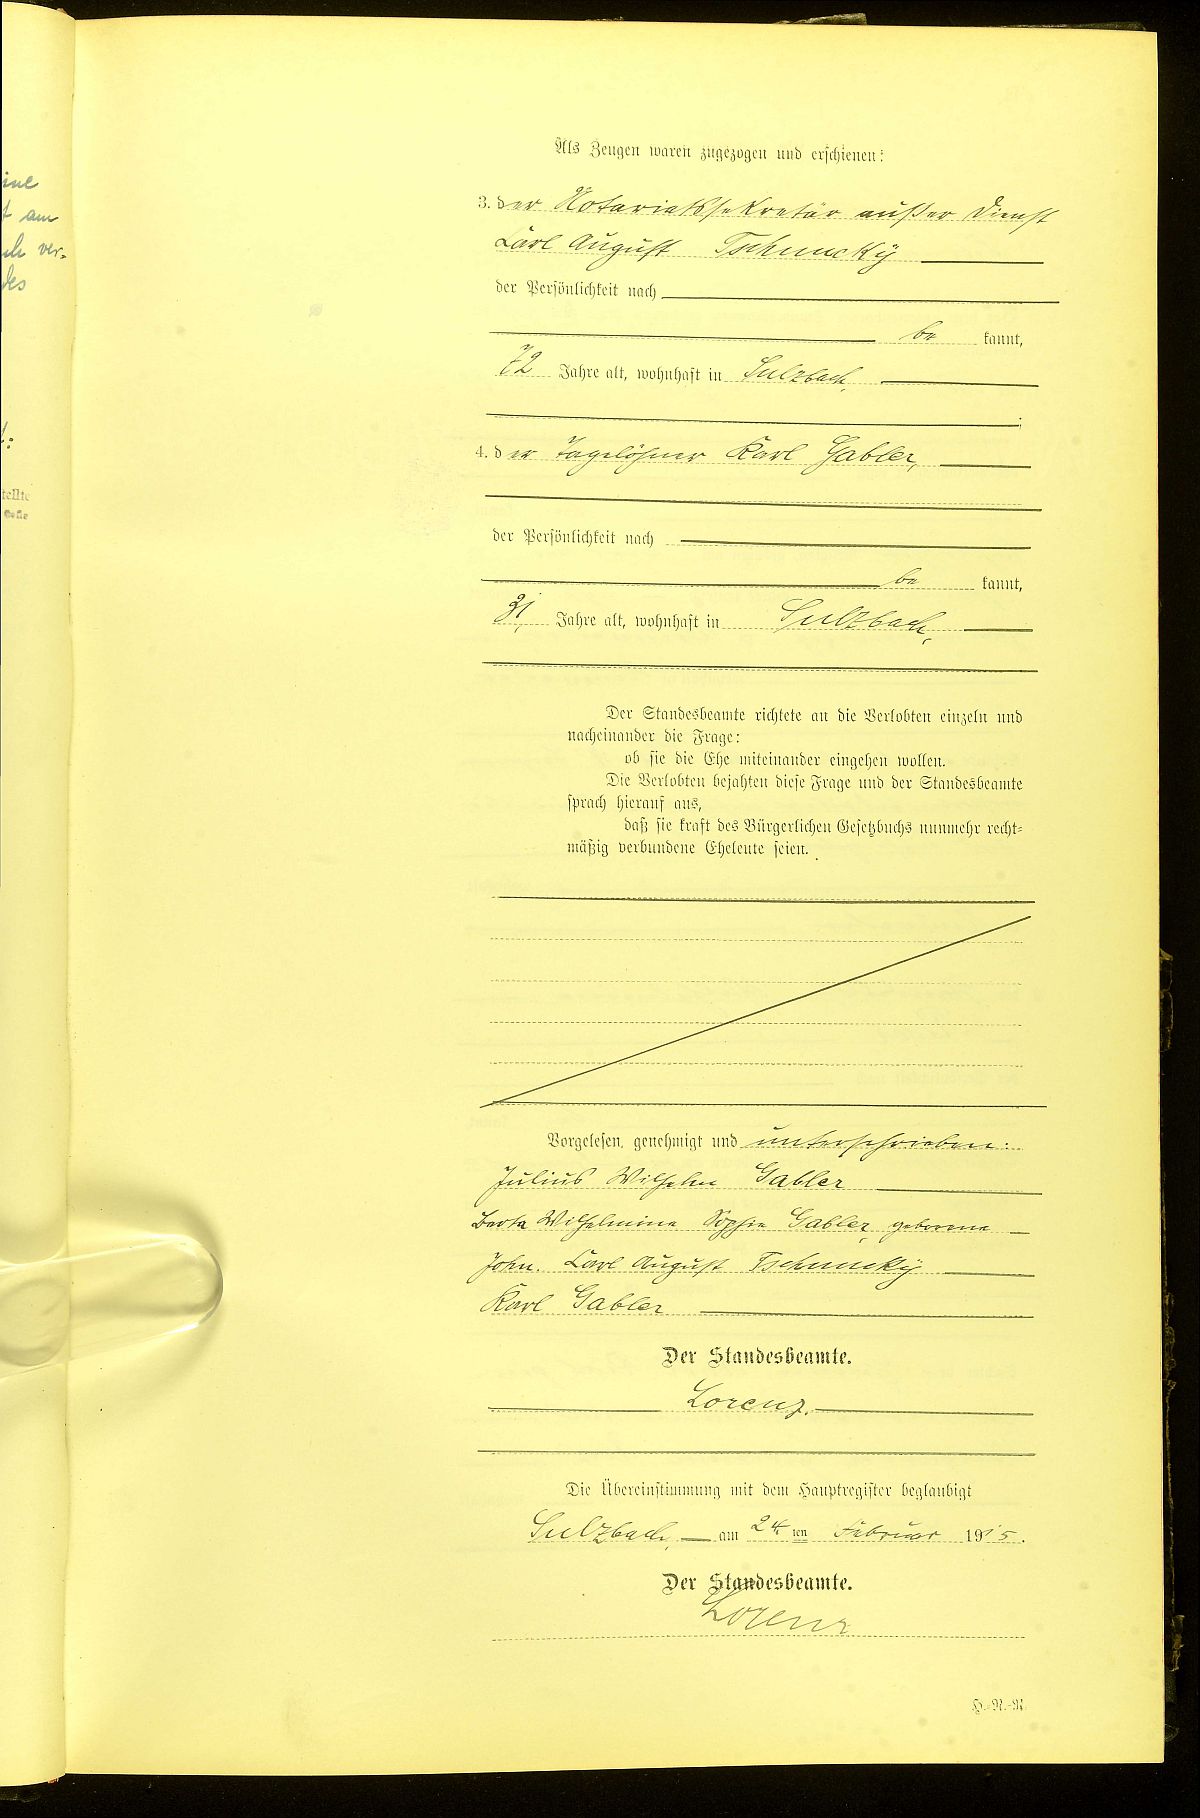 ine
t am
ch ver-
des
t:
tellte
Als Zeugen waren zugezogen und erschienen:
3. der Notariatssekretär außer Dienst
Carl August Tschucky
der Persönlichkeit nach
be kannt,
72 Jahre alt, wohnhaft in Sulzbach,
4. der Tagelöhner Karl Gabler,
der Persönlichkeit nach
be kannt,
31, Jahre alt, wohnhaft in Sulzbach,
Der Standesbeamte richtete an die Verlobten einzeln und
nacheinander die Frage:
ob sie die Ehe miteinander eingehen wollen.
Die Verlobten bejahten diese Frage und der Standesbeamte
sprach hierauf aus,
daß sie kraft des Bürgerlichen Gesetzbuchs nunmehr recht-
mäßig verbundene Eheleute seien.
Vorgelesen, genehmigt und unterschrieben:
Julius Wilhelm Gabler
Berta Wilhelmine Sophie Gabler, geborene
John. Carl August Tschucky
Karl Gabler
Der Standesbeamte.
Lorenz.
Die Übereinstimmung mit dem Hauptregister beglaubigt
Sulzbach, am 24. ten Februar 1915.
Der Standesbeamte.
Lorenz
H.-N.-R.